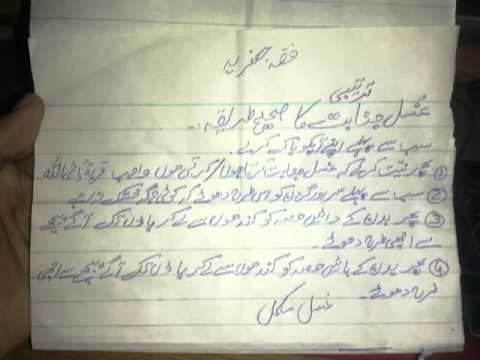 فقہ جعفریہ
ترتیبی
غسل جنابت کا صحیح طریقہ:۔
سب سے پہلے اپنے آپکو پاک کرے۔
① پھر نیت کرے کہ غسل جنابت کرتا ہوں/کرتی ہوں واجب قربۃً الی اللہ
② سب سے پہلے سر و گردن کو اس طرح دھوئے کہ کوئی جگہ خشک نہ رہے
③ پھر بدن کے دائیں حصہ کو کندھوں سے لے کر پاؤں تک آگے پیچھے
سے اچھی طرح دھوئے۔
④ پھر بدن کے بائیں حصہ کو کندھوں سے لے کر پاؤں تک آگے پیچھے سے اچھی
طرح دھوئے۔
غسل مکمل